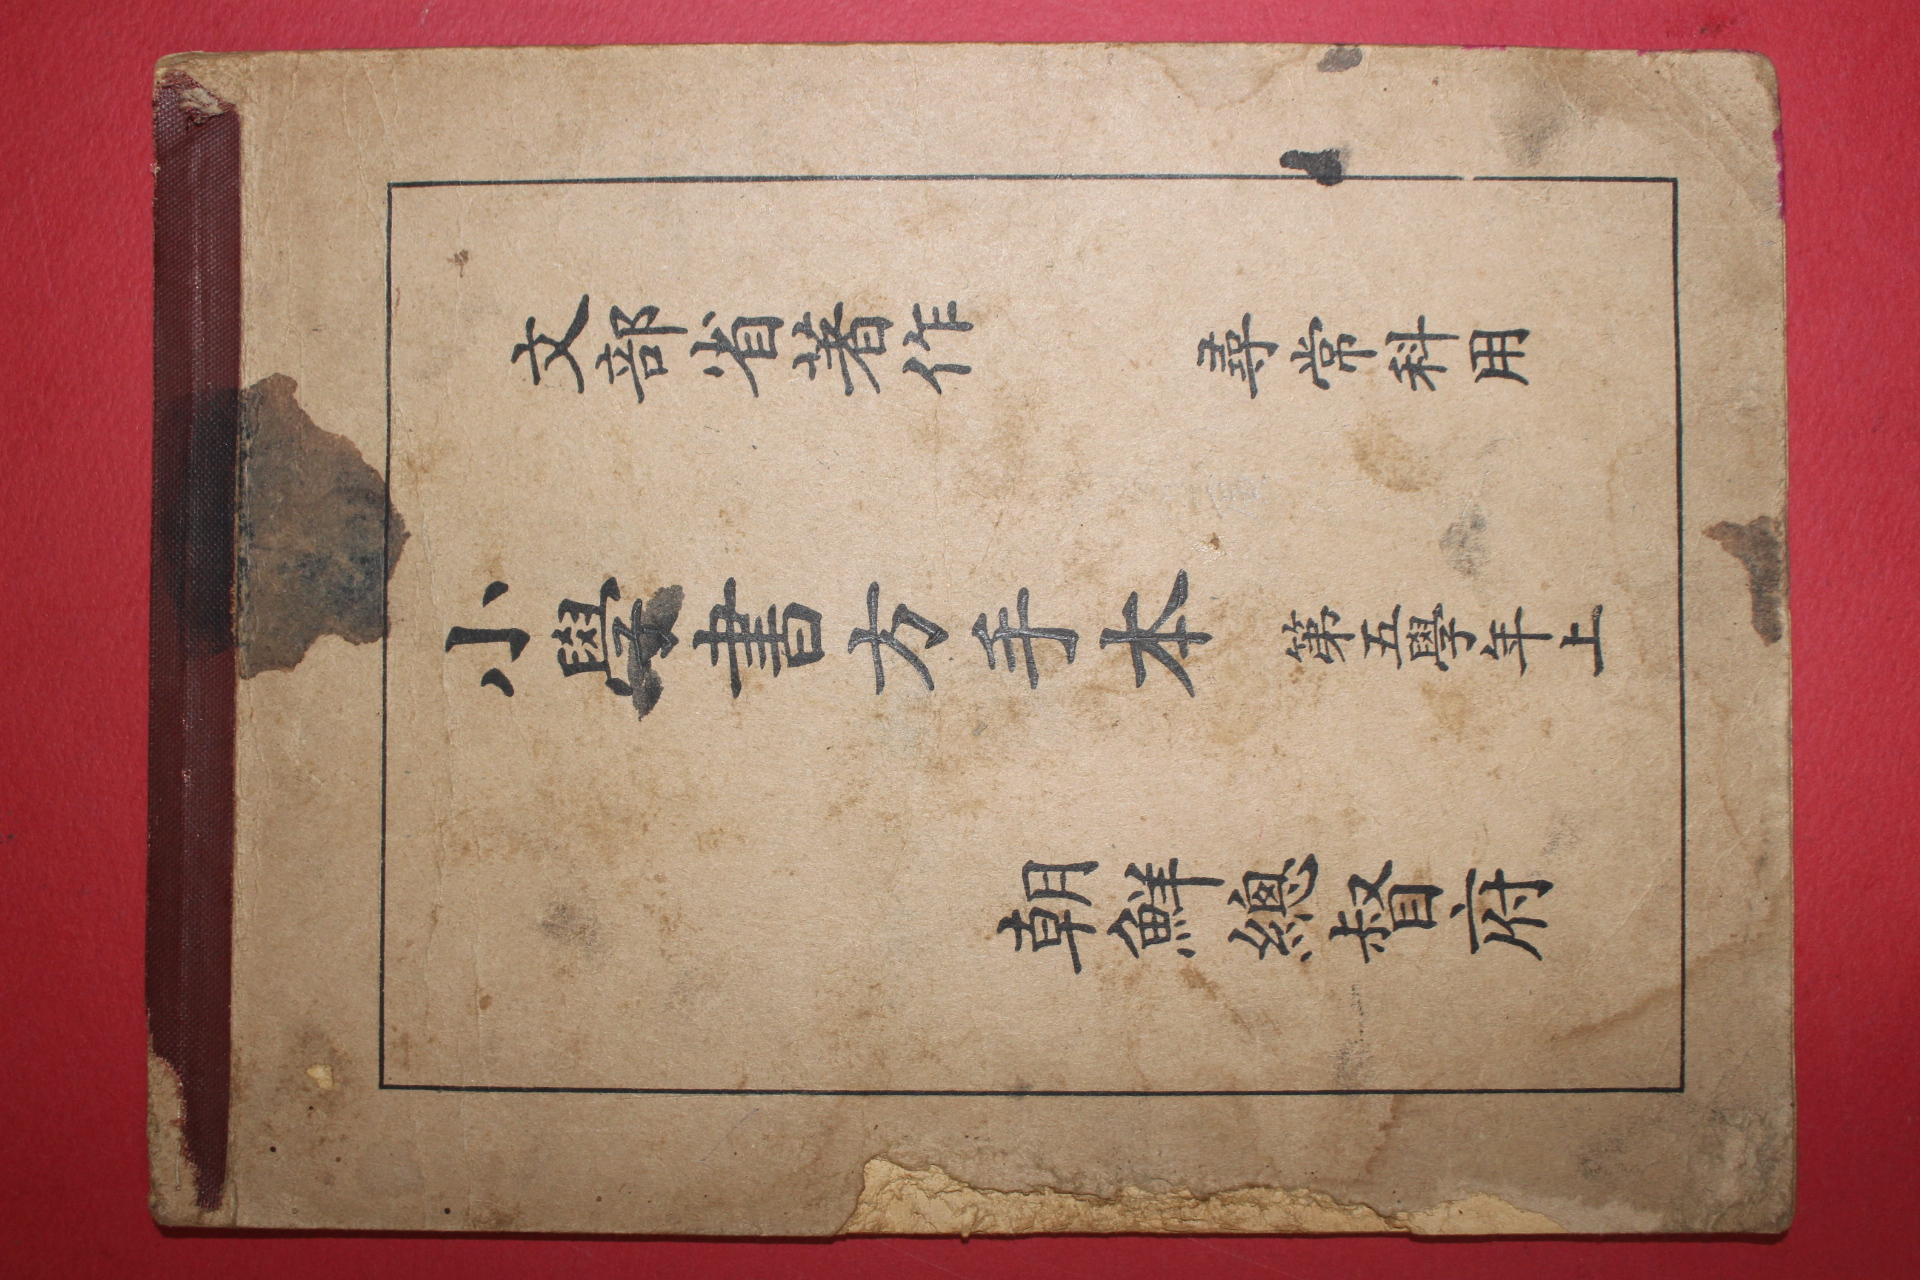 文部省著作
尋常科用
小學書方手本 第五學年上
朝鮮總督府